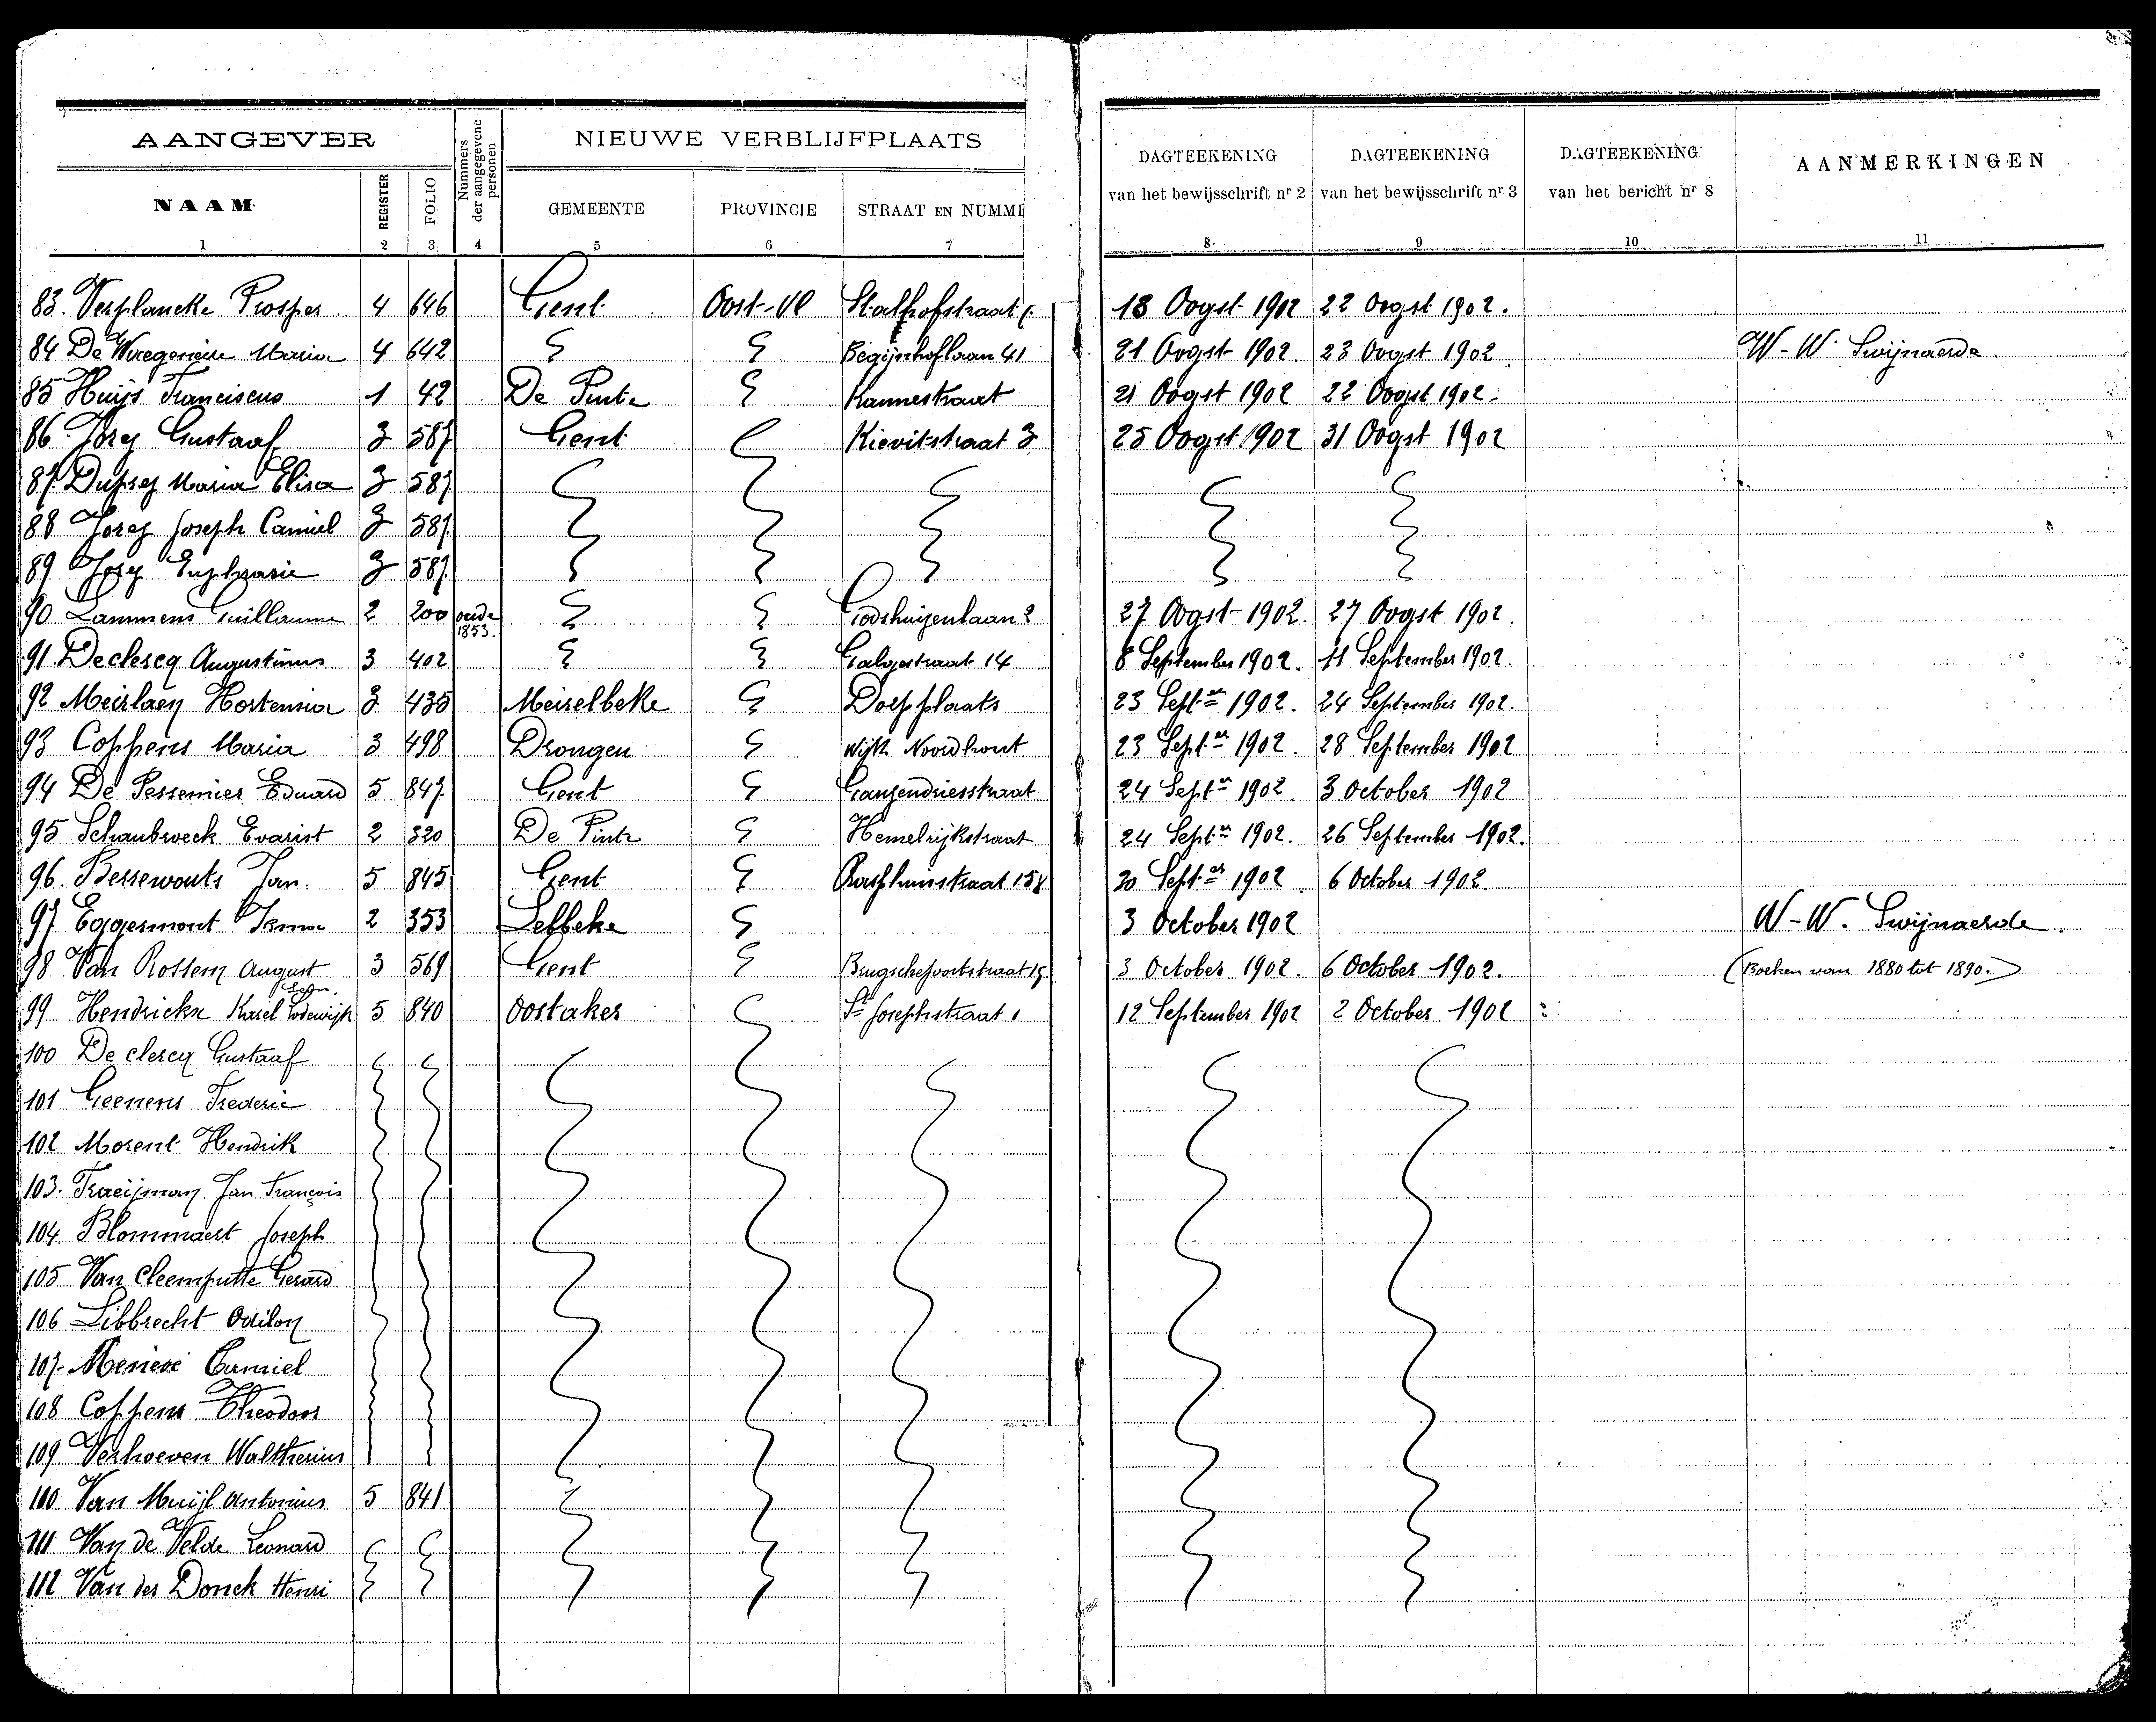 AANGEVER
Nummers der aangegevene personen
NIEUWE VERBLIJFPLAATS
DAGTEEKENING van het bewijsschrift nr 2
DAGTEEKENING van het bewijsschrift nr 3
DAGTEEKENING van het bericht nr 8
AANMERKINGEN
NAAM REGISTER FOLIO GEMEENTE PROVINCIE STRAAT EN NUMME
1 2 3 4 5 6 7 8 9 10 11
83. Verplancke Prosper 4 646 Gent Oost-Vl Stalhofstraat 18 Oogst 1902 22 Oogst 1902.
84 De Waegeneire Maria 4 642 Begijnhoflaan 41 21 Oogst 1902. 23 Oogst 1902 W-W. Swijnaerde
85 Huijs Franciscus 1 42 De Pinte Kannestraat 21 Oogst 1902 22 Oogst 1902.
86 Joreg Gustaaf 3 587 Gent Kievitstraat 3 25 Oogst 1902 31 Oogst 1902
87 Duprez Maria Elisa 3 587
88 Joreg Joseph Camiel 3 587
89 Joreg Euphrasie 3 587
90 Lammens Guillaume 2 200 oude 1853. Godshuizenlaan 2 27 Oogst 1902. 27 Oogst 1902.
91 Declercq Augustinus 3 402 Galgestraat 14 8 September 1902. 11 September 1902.
92 Meirlaen Hortensia 3 435 Meirelbeke Dorpplaats 23 Septer 1902. 24 September 1902.
93 Coppens Maria 3 498 Drongen wijk Noordhout 23 Septer 1902. 28 September 1902
94 De Pessemier Eduard 5 847 Gent Ganzendriesstraat 24 Septer 1902. 3 October 1902
95 Schaubroeck Evarist 2 320 De Pinte Hemelrijkstraat 24 Septer 1902. 26 September 1902.
96. Bessewouts Jan. 5 845 Gent Rasphuisstraat 158 30 Septer 1902 6 October 1902.
97 Eggermont Irma 2 353 Lebbeke 3 October 1902 W-W. Swijnaerde.
98 Van Rossem August 3 569 Gent Brugschepoortstraat 19 3 October 1902. 6 October 1902. (Boeken van 1880 tot 1890.)
99 Hendrickx Karel Lodewijk 5 840 Oostaker St Josephstraat 1 12 September 1902 2 October 1902
100 De clercq Gustaaf
101 Geenens Frederic
102 Morent Hendrik
103. Traeijman Jan François
104. Blommaert Joseph
105 Van Cleemputte Gerard
106 Libbrecht Odilon
107. Camiel
108 Coppens Theodoor
109 Verhoeven Waltherius
110 Van Muijl Antonius 5 841
111 Van de Velde Leonard
112 Van der Donck Henri